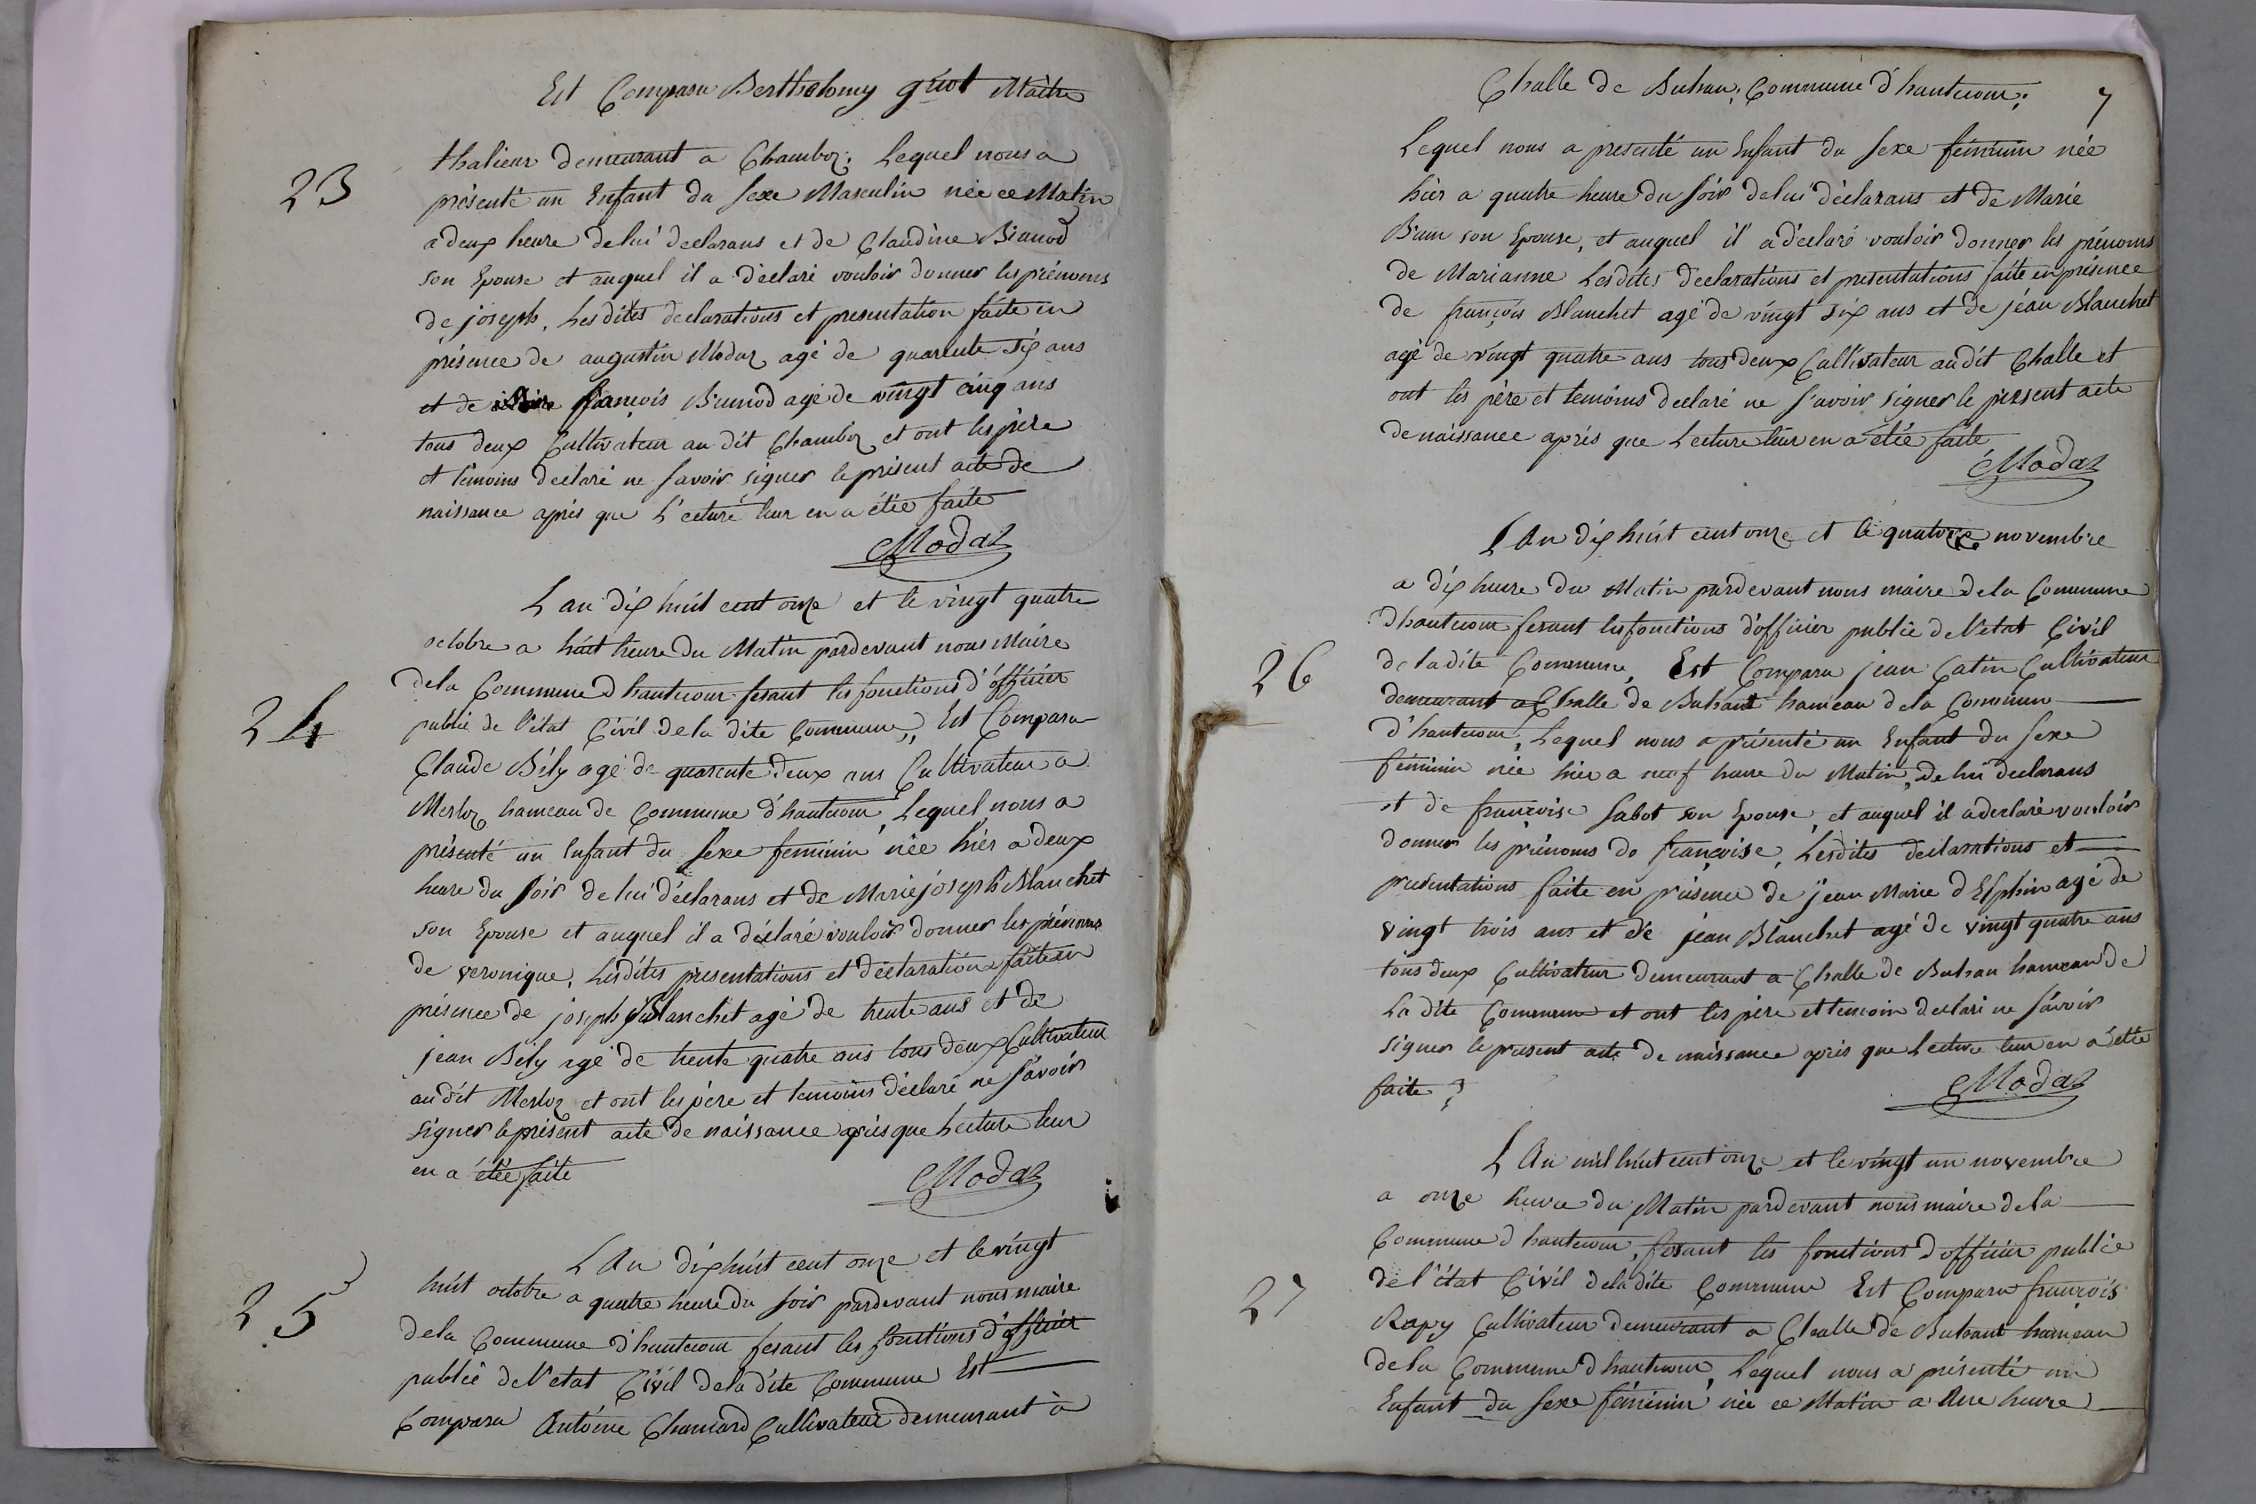 Est Comparu Berthelomy griot Maitre
23
thalieur demeurant a Chamboz. Lequel nous a
présenté un Enfant du sexe Masculin née ce Matin
a deux heure de lui declarans et de Claudine
son Epouse et auquel il a déclaré vouloir donner les prénoms
de joseph, Les dites declarations et presentation faite en
présence de augustin Modaz agé de quarente six ans
et de françois agé de vingt cinq ans
tous deux Cultivateur au dit Chamboz et ont les père
et temoins declaré ne savoir signer le présent acte de
naissance après que L'ecture leur en a étée faite
Modaz
L an dix huit cent onze et le vingt quatre
octobre a huit heure du Matin pardevant nous Maire
24
de la Commune d hautecour fesant les fonctions d'officier
public de l'état Civil de la dite Commune, Est Comparu
Claude Bély agé de quarente deux ans Cultivateur a
Merloz hameau de Commune d'hautecour, Lequel nous a
présenté un Enfant du sexe feminin née hier a deux
heure du soir de lui déclarans et de Marie joseph Blanchet
son Epouse et auquel il a déclaré vouloir donner les prénoms
de veronique, Lesdites presentations et déclarations faite en
présence de joseph Blanchet agé de trente ans et de
jean Bély agé de trente quatre ans tous deux Cultivateur
au dit Merloz et ont les père et temoins déclaré ne savoir
signer le présent acte de naissance après que Lecture leur
en a étée faite
Modaz
L An dix huit cent onze et le vingt
25
huit octobre a quatre heure du soir pardevant nous maire
de la Commune d'hautecour fesant les fonctions d'officier
public de l'etat Civil de la dite Commune Est
Comparu Antoine Chanard Cultivateur demeurant à
Challe de Buhan, Commune d'hautecour;
7
Lequel nous a presenté un Enfant du sexe féminin née
hier a quatre heure du soir de lui déclarans et de Marie
son Epouse, et auquel il a déclaré vouloir donner les prénoms
de Marianne Lesdites declarations et presentations faite en présence
de françois Blanchet agé de vingt six ans et de jéan Blanchet
agé de vingt quatre ans tous deux Cultivateur au dit Challe et
ont les père et temoins declaré ne savoir signer le présent acte
de naissance après que Lecture leur en a étée faite
Modaz
L An dix huit cent onze et le quatorze novembre
a dix heure du Matin pardevant nous maire de la Commune
d hautecour fesant les fonctions d'officier public de l'etat Civil
26
de la dite Commune, Est Comparu jean Catin Cultivateur
demeurant a Challe de Buhant hameau de la Commun
d'hautecour, Lequel nous a présenté un Enfant du sexe
féminin née hier a neuf heure du Matin, de lui declarans
et de françoise Sabot son Epouse, et auquel il a declaré vouloir
donner les prénoms de françoise, Lesdites declarations et
presentations faite en présence de jean Marie d Elphin agé de
vingt trois ans et de jéan Blanchet agé de vingt quatre ans
tous deux Cultivateur demeurant a Challe de Buhan hameau de
La dite Commune et ont les père et temoin declaré ne savoir
signer le present acte de naissance après que Lecture leur en a étté
faite
Modaz
L An mil huit cent onze et le vingt un novembre
a onze heure du Matin pardevant nous maire de la
Commune d hautecour, fesant les fonctions d'officier public
27
de l'état Civil de la dite Commune Est Comparu françois
Rapy Cultivateur demeurant a Challe de Buhant hameau
de la Commune d hautecour, Lequel nous a présenté un
Enfant du sexe féminin née ce Matin a une heure